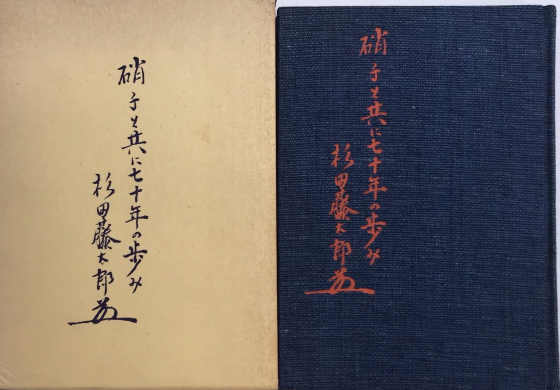 硝子と共に七十年の歩み
杉田藤太郎
硝子と共に七十年の歩み
杉田藤太郎